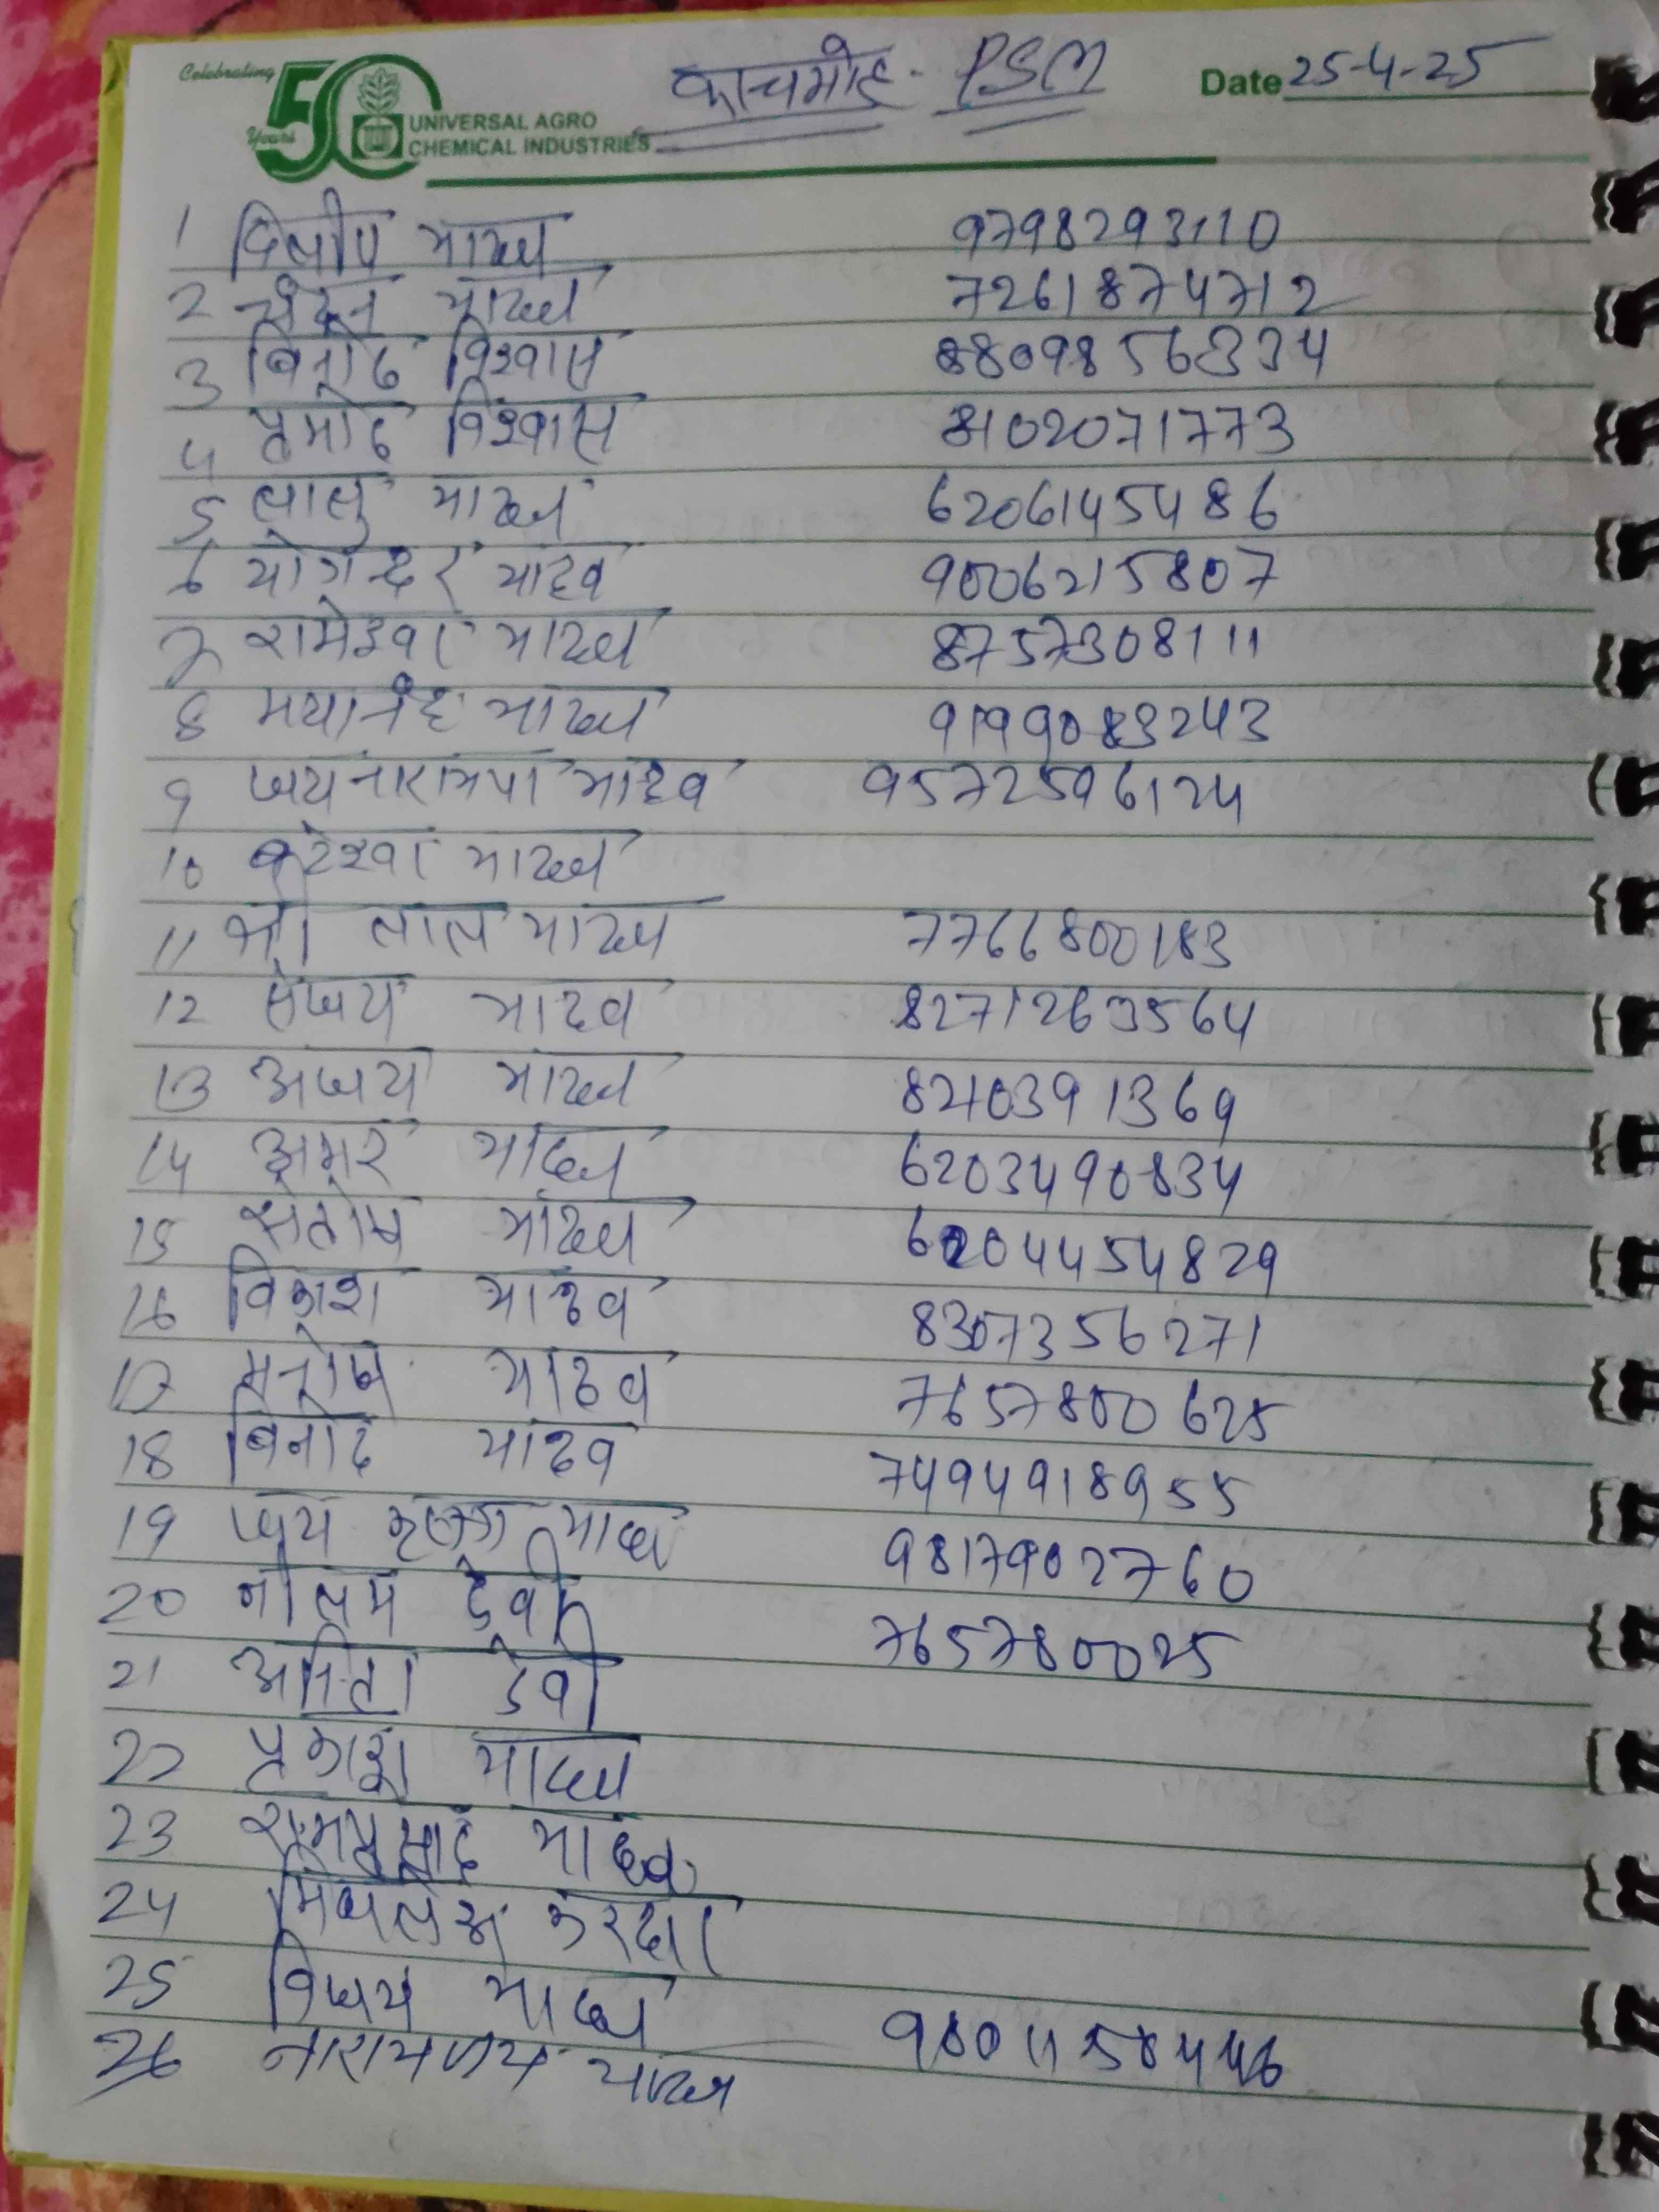 Celebrating 50 Years
UNIVERSAL AGRO
CHEMICAL INDUSTRIES
काचमोह - PSM
Date 25-4-25
1 दिलीप यादव 9798293110
2 चंदन यादव 7261874712
3 बिनोद विश्वास 8809856334
4 प्रमोद विश्वास 8102071773
5 लालु यादव 6206145486
6 योगेन्दर यादव 9006215807
7 रामेश्वर यादव 8757308111
8 मयानंद यादव 9199083243
9 जयनारायण यादव 9572596124
10 बटेश्वर यादव
11 श्री लाल यादव 7766800183
12 संजय यादव 8271263564
13 अजय यादव 8210391369
14 अमर यादव 6203490834
15 संतोष यादव 6204454829
16 विकाश यादव 8307356271
17 मनोज यादव 7657800625
18 बिनोद यादव 7494918955
19 जय कृष्णा यादव 9817902760
20 नीलम देवी 765780025
21 अनिता देवी
22 प्रकाश यादव
23 रामप्रसाद यादव
24
25 विजय यादव
26 यादव